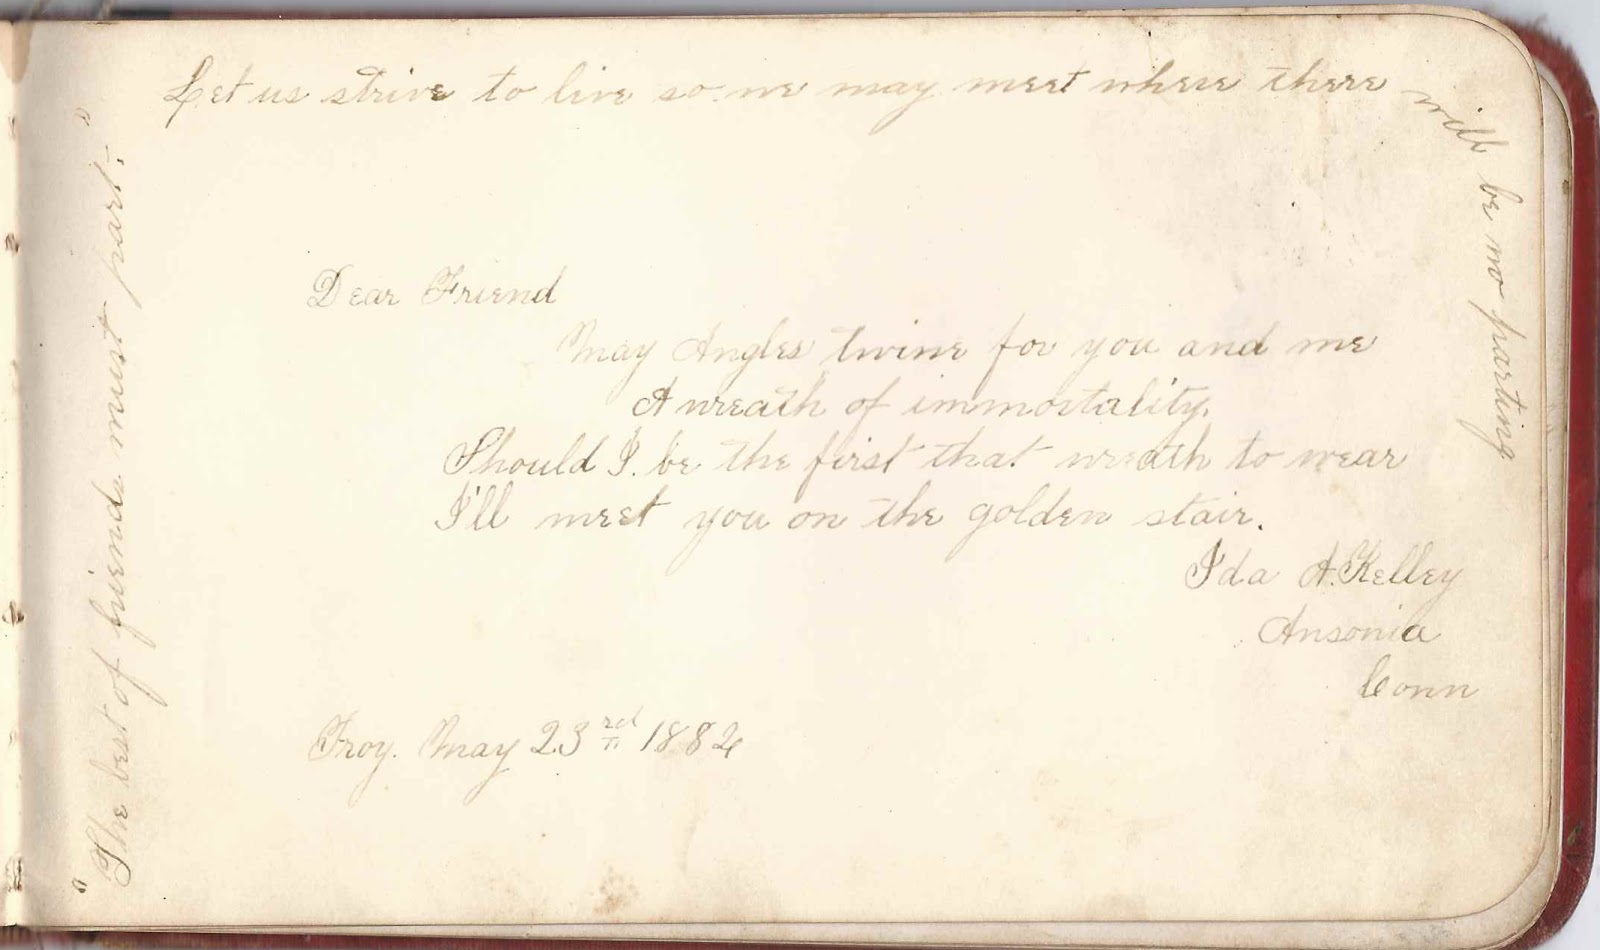 Let us strive to live so we may meet where there will be no parting
"The best of friends must part."
Dear Friend
May Angles twine for you and me
A wreath of immortality.
Should I. be the first that wreath to wear
I'll meet you on the golden stair.
Ida A. Kelley
Ansonia
Conn
Troy. May 23rd 1882